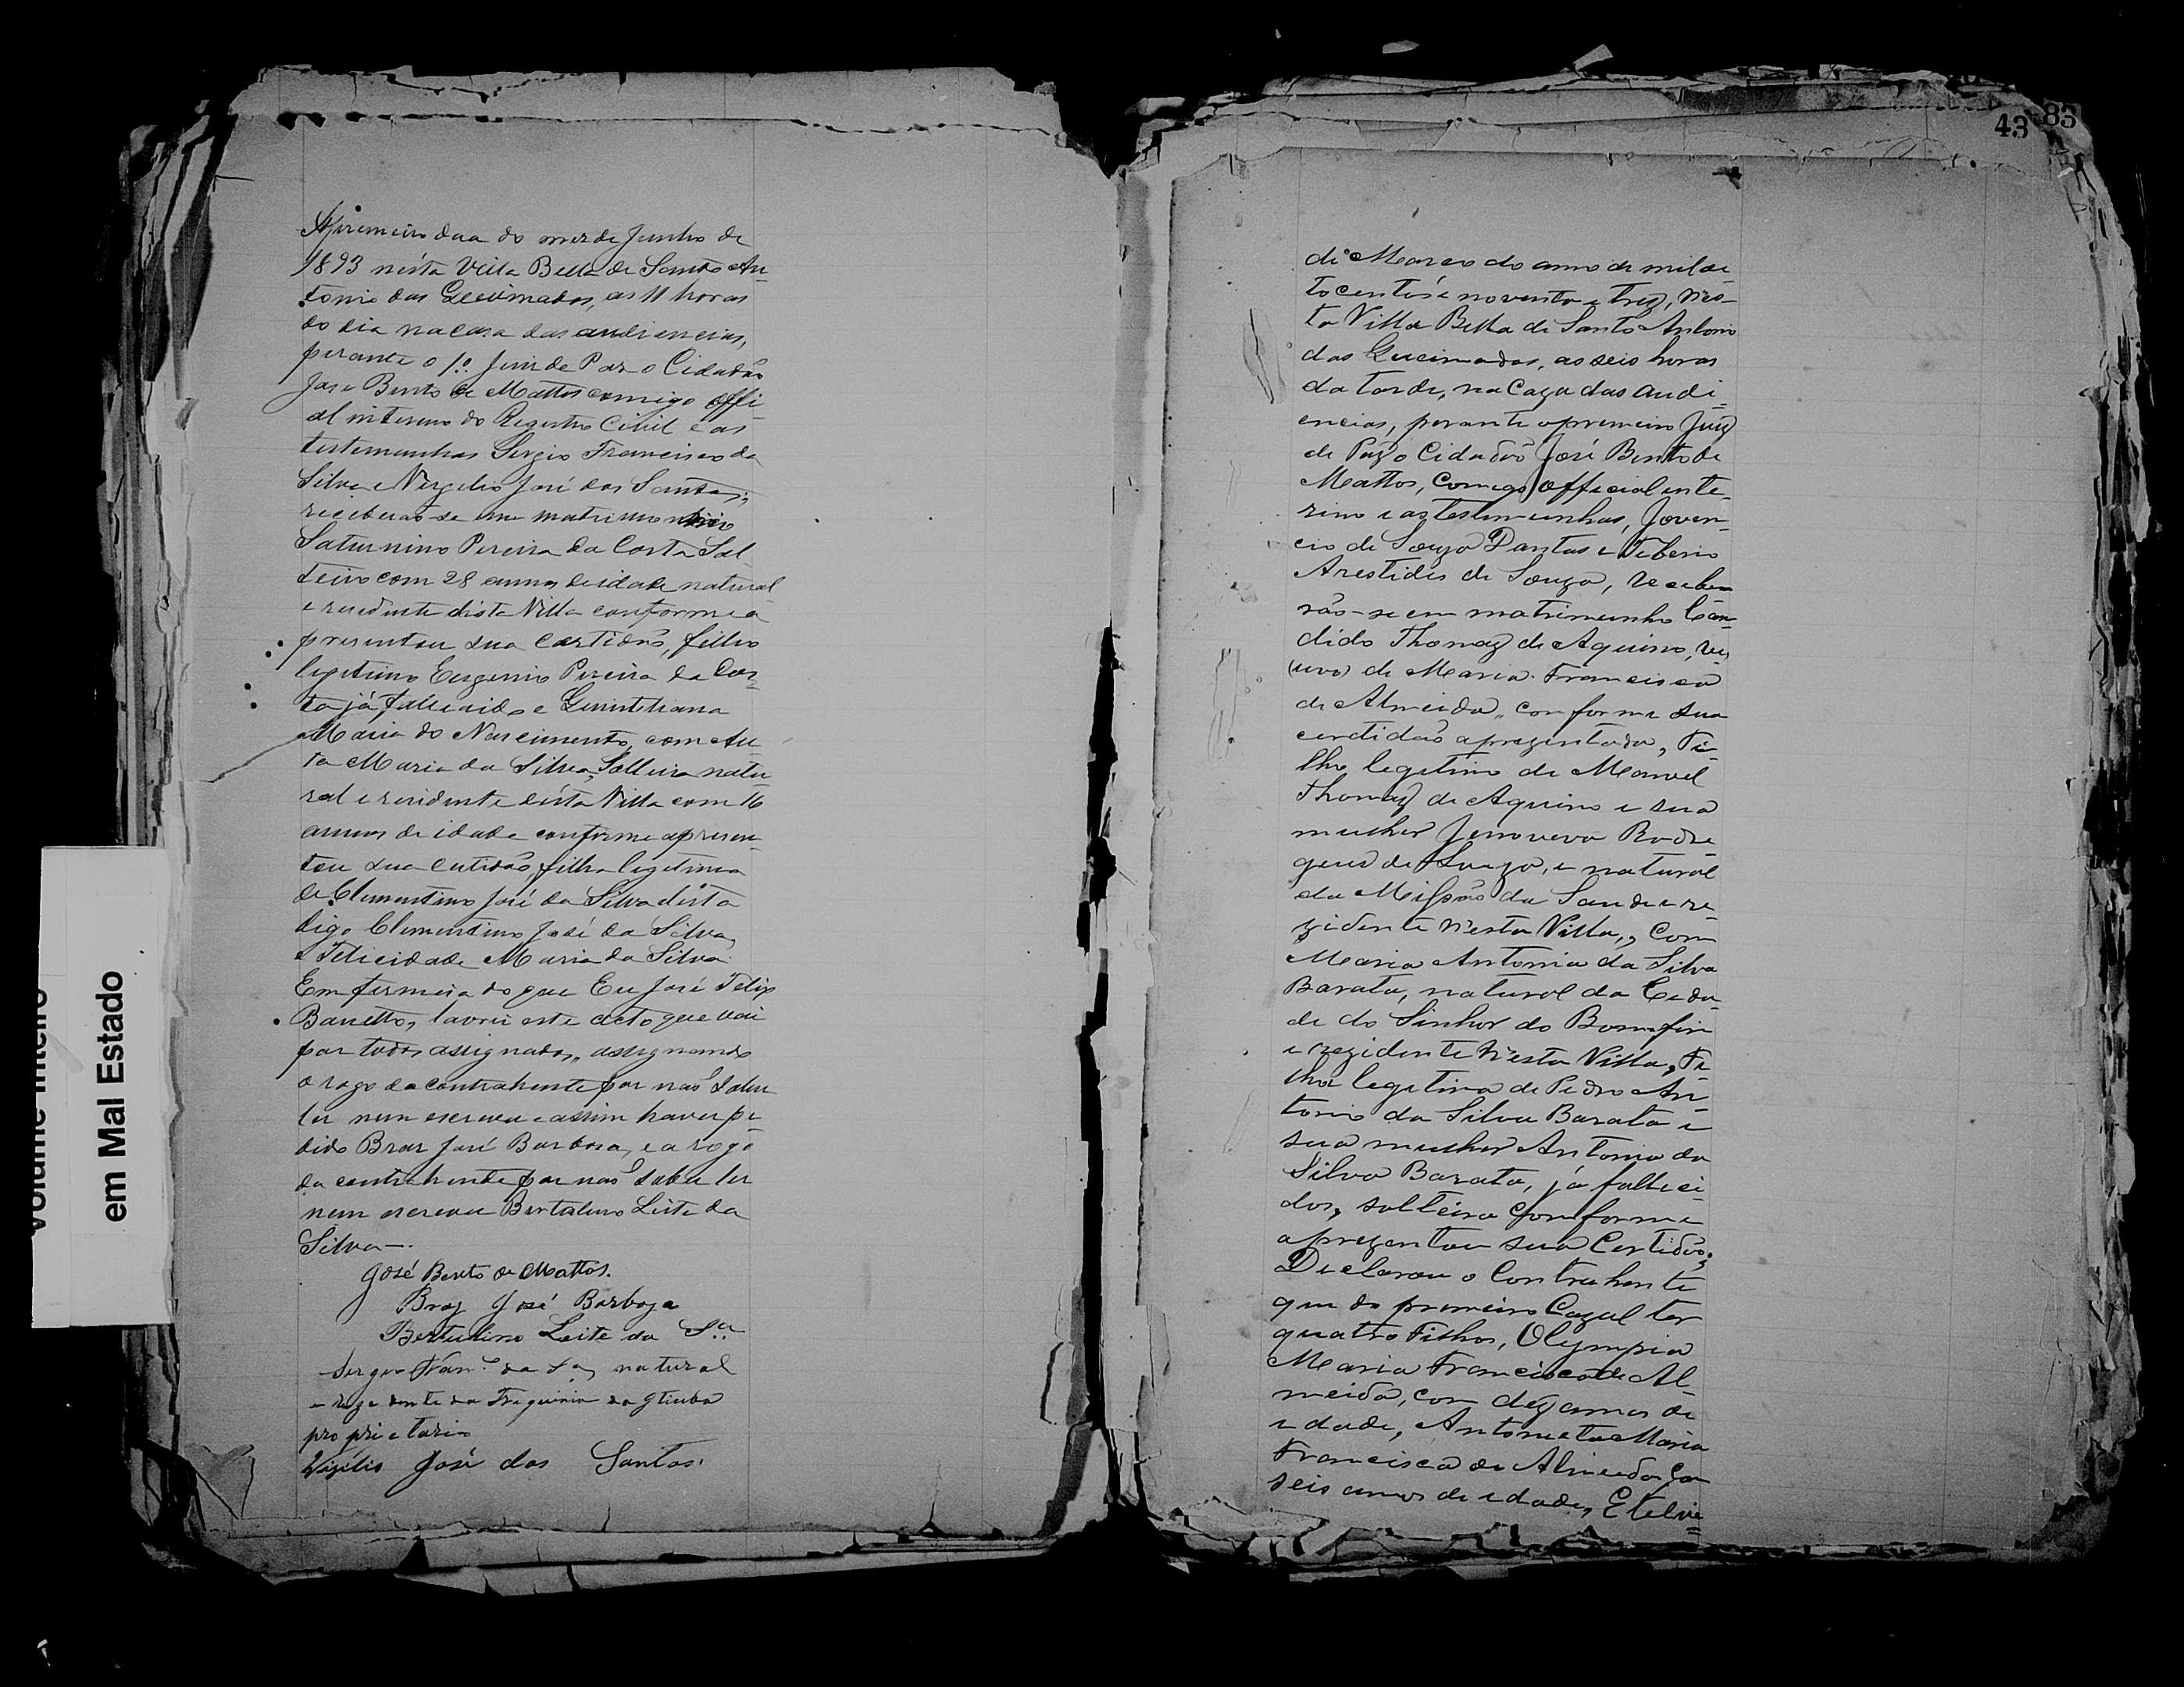 Apremeiro dia do mez de Junho de
1893 nésta Villa Bella de Santo An-
tonio das Queimadas, as 11 horas
do dia na casa das audiencias,
perante o 1º Juiz de Paz o Cidadão
José Bento de Mattos comigo offi-
al interino do Registro Civil e as
testemunhas Sergio Francisco da
Silva e Vergilio José dos Santos;
receberão-se em matrimonio
Saturnino Pereira da Costa Sol
teiro com 28 annos de idade natural
e residente désta Villa conforme a
presentou sua Certidão, filho
legitimo Eugenio Pereira da Cos-
ta já fallecido e Quintiliana
Maria do Nascimento, com Au-
ta Maria da Silva, Solteira natu
ral e residente désta Villa com 16
annos de idade conforme apresen-
tou sua certidão, filha legitima
de Clementino José da Silva désta
digo Clementino José da Silva,
e Felicidade Maria da Silva.
Em firmeza do que Eu José Felix
Barretto, lavrei este acto que vai
por todos assignados, assignando
a rogo do contrahente por não saber
ler nem escrever e assim haver pe-
dido Braz José Barbosa, e a rogo
da contrahente por não saber ler
nem escrever Bertulino Leite da
Silva—.
José Bento de Mattos.
Braz José Barboza
Bertulino Leite da Sa
Sergio Franco da Sa, natural
e rezedente da Freguizia da Itiuba
proprietario
Vigilio José dos Santos.
43 83
de Março do anno de mil oi
to centos e noventa e trez, nes-
ta Villa Bella de Santo Antonio
das Queimadas, as seis horas
da tarde, na Caza das audi-
encias, perante o premeiro Juiz
de Paz o Cidadão José Bento de
Mattos, Comigo official inte-
rino e as testemunhas, Joven-
cio de Souza Dantas e Teberio
Arestides de Souza, recebe
rão-se em matrimonho Can-
dido Thomaz de Aquino, vi
(uvo) de Maria Francisca
de Almeida, conforme sua
certidão aprezentada, Fi-
lho legitimo de Manoel
Thomaz de Aquino e sua
mulher Jenoveva Rodri
gues de Souza, e natural
da Missão da Saude e re-
zidente n'esta Villa,, Com
Maria Antonia da Silva
Barata, natural da Cida
de do Sinhor do Bomfim
e rezidente n'esta Villa, Fi
lha legitima de Pedro An
tonio da Silva Barata e
sua mulher Antonia da
Silva Barata, já falleci-
dos, solteira Conforme
aprezentou sua Certidão.
Declarou o Contrahente
que do premeiro Cazal ter
quatro Filhos, Olympia
Maria Francisca de Al-
meida, com dez annos de
idade, Antonieta Maria
Francisca de Almeida Com
seis annos de idade, Etelvi=
Volume Inteiro
em Mal Estado